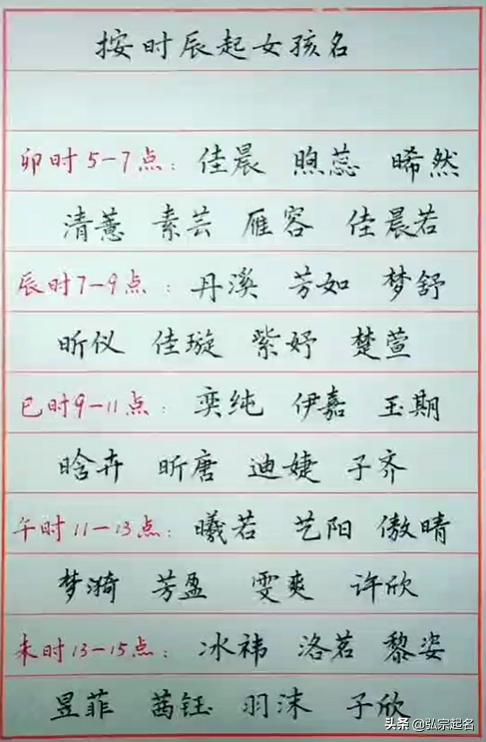 按时辰起女孩名
卯时5-7点：佳晨 煦蕊 晞然
清蕙 素芸 雁容 佳晨若
辰时7-9点：丹溪 芳如 梦舒
昕仪 佳璇 紫妤 楚萱
巳时9-11点：奕纯 伊嘉 玉期
晗卉 昕唐 迪婕 子齐
午时11-13点：曦若 艺阳 傲晴
梦漪 芳盈 雯爽 许欣
未时13-15点：冰祎 洛茗 黎姿
昱菲 茜钰 羽沫 子欣
头条@弘宗起名